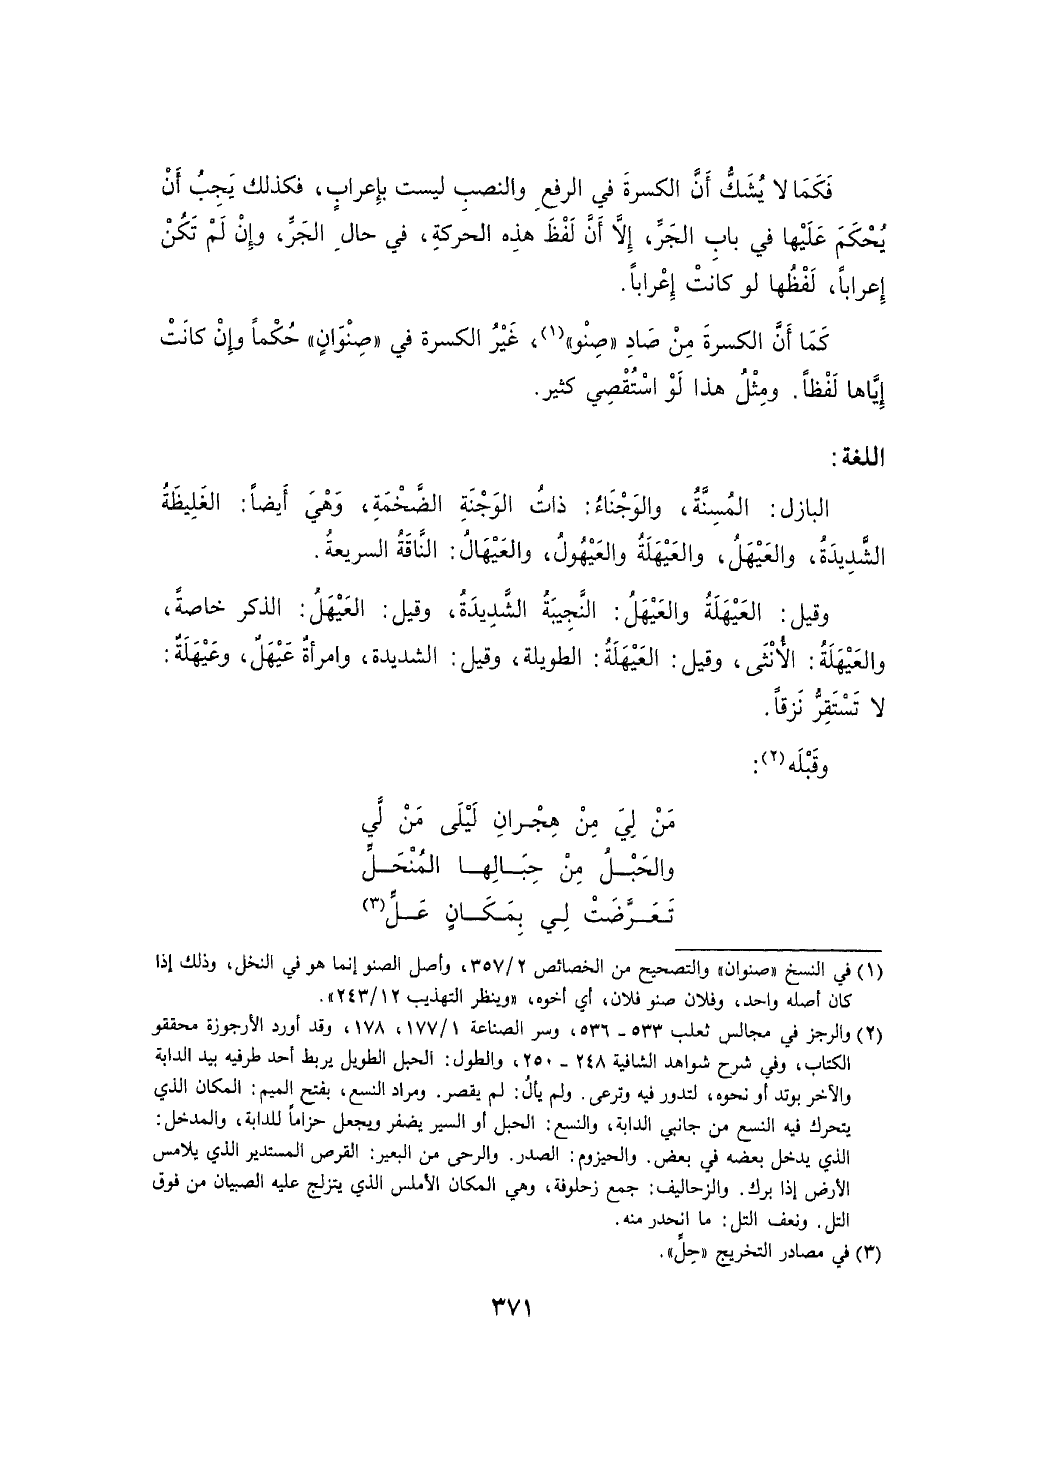 فَكَمَا لا يُشَكُّ أَنَّ الكسرةَ في الرفعِ والنصبِ ليست بإعرابٍ، فكذلك يَجِبُ أَنْ
يُحْكَمَ عَلَيْها في بابِ الجَرِّ، إِلاَّ أَنَّ لَفْظَ هذِه الحركةِ، في حالِ الجَرِّ، وإِنْ لَمْ تَكُنْ
إِعراباً، لَفْظُها لو كانتْ إِعْراباً.
كَمَا أَنَّ الكسرةَ مِنْ صَادِ «صِنْو»(١)، غَيْرُ الكسرة في «صِنْوَانٍ» حُكْماً وإِنْ كانَتْ
إِيَّاها لَفْظاً. ومِثْلُ هذا لَوْ اسْتُقْصِي كثير.
اللغة:
البازل: المُسِنَّةُ، والوَجْنَاءُ: ذاتُ الوَجْنَةِ الضَّخْمَةِ، وَهْيَ أَيضاً: الغَلِيظَةُ
الشَّدِيدَةُ، والعَيْهَلُ، والعَيْهَلَةُ والعَيْهُولُ، والعَيْهَالُ: النَّاقَةُ السريعةُ.
وقيل: العَيْهَلَةُ والعَيْهَلُ: النَّجِيبَةُ الشَّدِيدَةُ، وقيل: العَيْهَلُ: الذكر خاصةً،
والعَيْهَلَةُ: الأُنْثَى، وقيل: العَيْهَلَةُ: الطويلة، وقيل: الشديدة، وامرأةٌ عَيْهَلٌ، وعَيْهَلَةٌ:
لا تَسْتَقِرُّ نَزقاً.
وقَبْلَه(٢):
مَنْ لِيَ مِنْ هِجْرانِ لَيْلَى مَنْ لَّي
والحَبْلُ مِنْ حِبَالِها المُنْحَلِّ
تَعَرَّضَتْ لِي بِمَكَانٍ عَلِّ(٣)
(١) في النسخ «صنوان» والتصحيح من الخصائص ٣٥٧/٢، وأصل الصنو إنما هو في النخل، وذلك إذا
كان أصله واحد، وفلان صنو فلان، أي أخوه، «وينظر التهذيب ٢٤٣/١٢».
(٢) والرجز في مجالس ثعلب ٥٣٣ - ٥٣٦، وسر الصناعة ١٧٧/١، ١٧٨، وقد أورد الأرجوزة محققو
الكتاب، وفي شرح شواهد الشافية ٢٤٨ - ٢٥٠، والطول: الحبل الطويل يربط أحد طرفيه بيد الدابة
والآخر بوتد أو نحوه، لتدور فيه وترعى. ولم يألُ: لم يقصر. ومراد النسع، بفتح الميم: المكان الذي
يتحرك فيه النسع من جانبي الدابة، والنسع: الحبل أو السير يضفر ويجعل حزاماً للدابة، والمدخل:
الذي يدخل بعضه في بعض. والحيزوم: الصدر. والرحى من البعير: القرص المستدير الذي يلامس
الأرض إذا برك. والزحاليف: جمع زحلوفة، وهي المكان الأملس الذي يتزلج عليه الصبيان من فوق
التل. ونعف التل: ما انحدر منه.
(٣) في مصادر التخريج «حِلِّ».
٣٧١